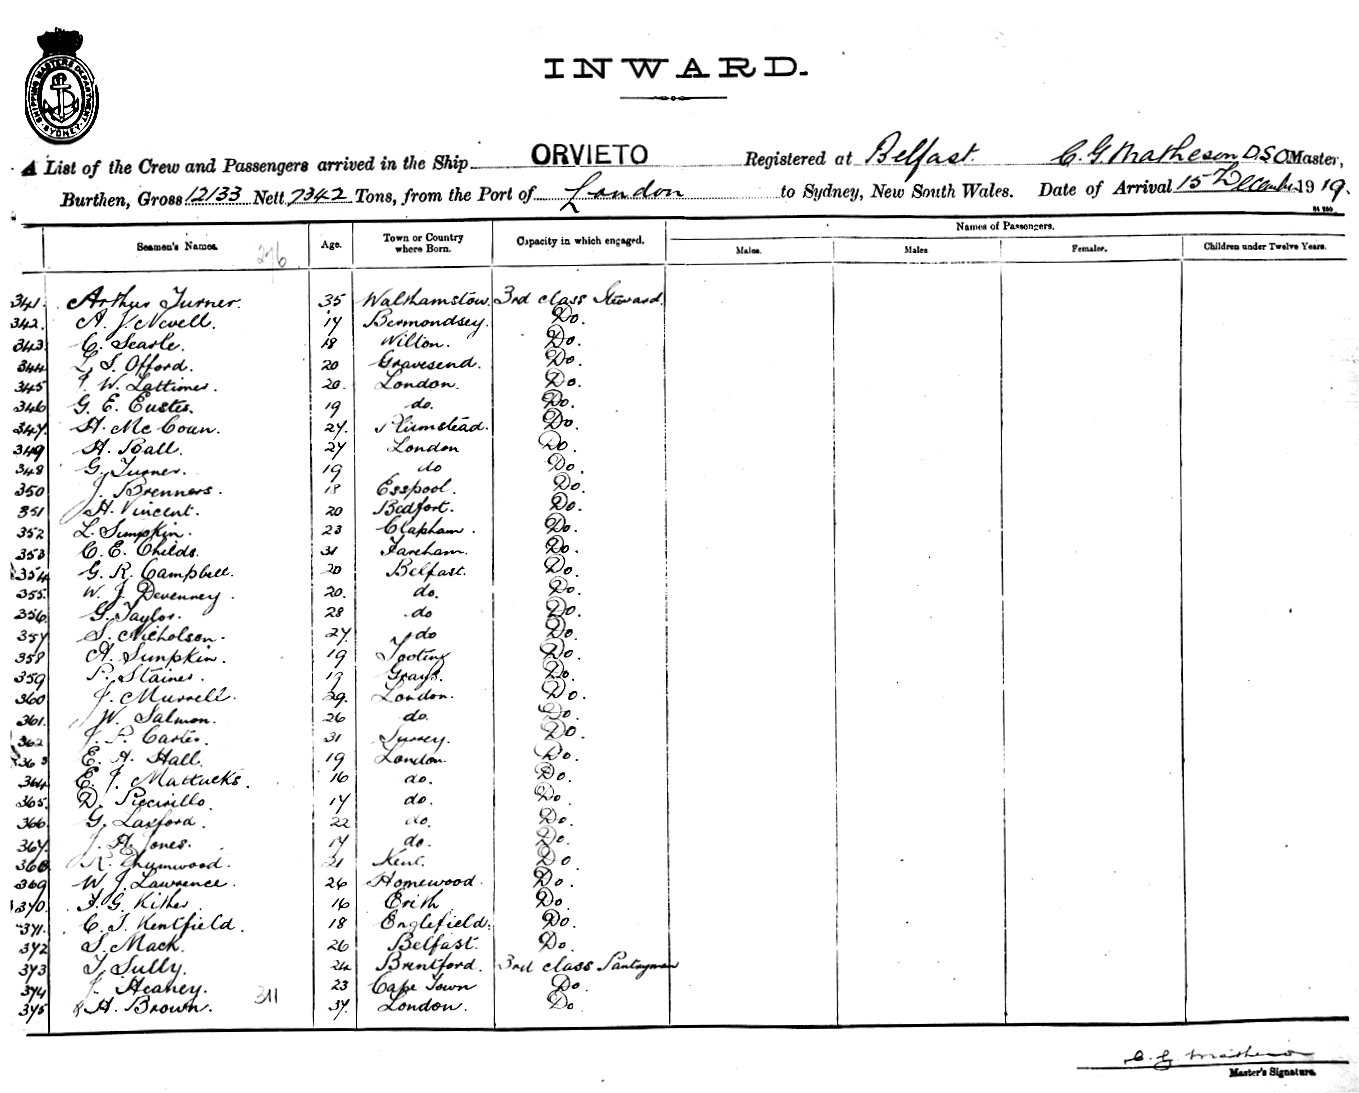 SHIPPING MASTERS DEPARTMENT SYDNEY
INWARD.
A List of the Crew and Passengers arrived in the Ship ORVIETO Registered at Belfast. C. G. Matheson D.S.O. Master,
Burthen, Gross 12133 Nett 7342 Tons, from the Port of London to Sydney, New South Wales. Date of Arrival 15th December 1919.
Names of Passengers.
Seamen's Names. 276 Age. Town or Country where Born. Capacity in which engaged. Males. Males Females. Children under Twelve Years.
341. Arthur Turner. 35 Walthamstow. 3rd class Steward.
342. A. J. Nevell. 17 Bermondsey. Do.
343 C. Searle. 18 Wilton. Do.
344 L. S. Offord. 20 Gravesend. Do.
345 J. W. Lattimer. 20. London. Do.
346 G. E. Eustes. 19 do. Do.
347. H. Mc Coun. 27. Plumstead. Do.
349 H. Ball. 27 London Do.
348 G. Turner. 19 do Do.
350 J. Brenners. 18 Esspool. Do.
351 H. Vincent. 20 Bedfort. Do.
352 L. Simpkin. 23 Clapham. Do.
353 C. E. Childs. 31 Fareham. Do.
354 G. R. Campbell. 20 Belfast. Do.
355. W. J. Devenney. 20. do. Do.
356 G. Taylor. 28 do Do.
357 S. Nicholson. 27. do Do.
358 A. Simpkin. 19 Tooting Do.
359 P. Staines. 19 Grays. Do.
360 J. Murrell. 29. London. Do.
361. W. Salmon. 26 do. Do.
362 J. P. Carter. 31 Surrey. Do.
363 E. A. Hall. 19 London Do.
364 E. J. Mattucks. 16 do. Do.
365. D. Piccirillo. 17 do. Do.
366. G. Laxford. 22 do. Do.
367. J. H. Jones. 17 do. Do.
368 R. 21 Kent. Do.
369 W. J. Lawrence. 26 Homewood. Do.
370. G. Kither. 16 Erith Do.
371. C. T. Kentfield. 18 Englefield. Do.
372 S. Mack. 26 Belfast. Do.
373 T. Sully. 24 Brentford. 3rd class Pantryman
374 J. Heaney. 23 Cape Town Do.
375 H. Brown. 311 37. London. Do
C. G. Matheson
Master's Signature.